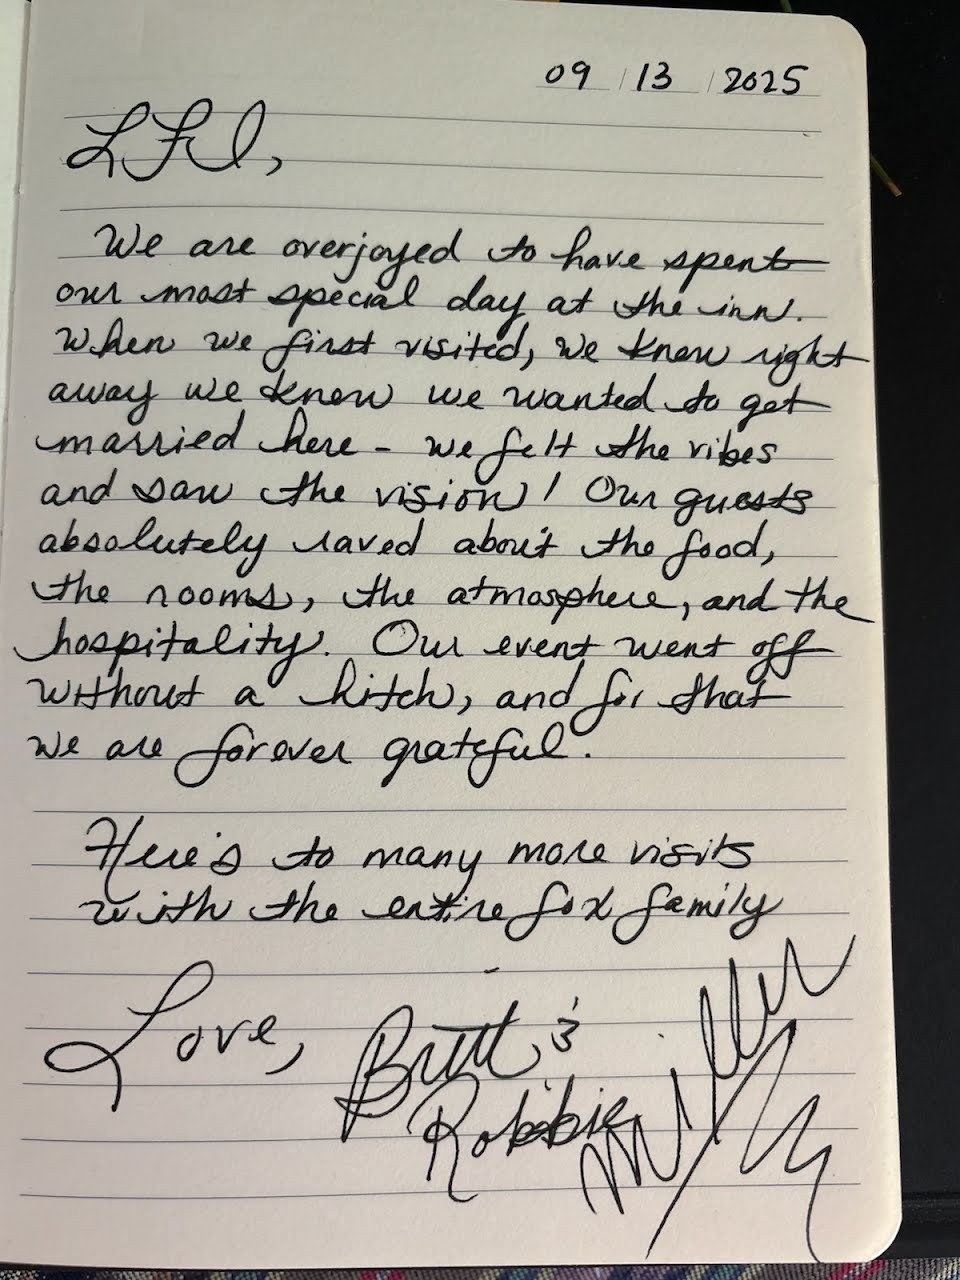 09 / 13 / 2025
LFI,
We are overjoyed to have spent
our most special day at the inn.
When we first visited, we knew right
away we knew we wanted to get
married here - we felt the vibes
and saw the vision! Our guests
absolutely raved about the food,
the rooms, the atmosphere, and the
hospitality. Our event went off
without a hitch, and for that
we are forever grateful.
Here's to many more visits
with the entire fox family
Love, Britt &
Robbie Miller